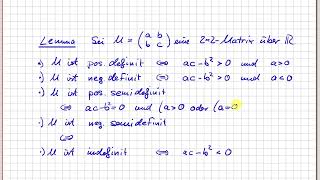 Lemma Sei M = (a b
b c) eine 2×2-Matrix über ℝ
•) M ist pos. definit ⇔ ac-b²>0 und a>0
•) M ist neg. definit ⇔ ac-b²>0 und a<0
•) M ist pos. semidefinit
⇔ ac-b²=0 und (a>0 oder (a=0
•) M ist neg. semidefinit
⇔
•) M ist indefinit ⇔ ac-b²<0